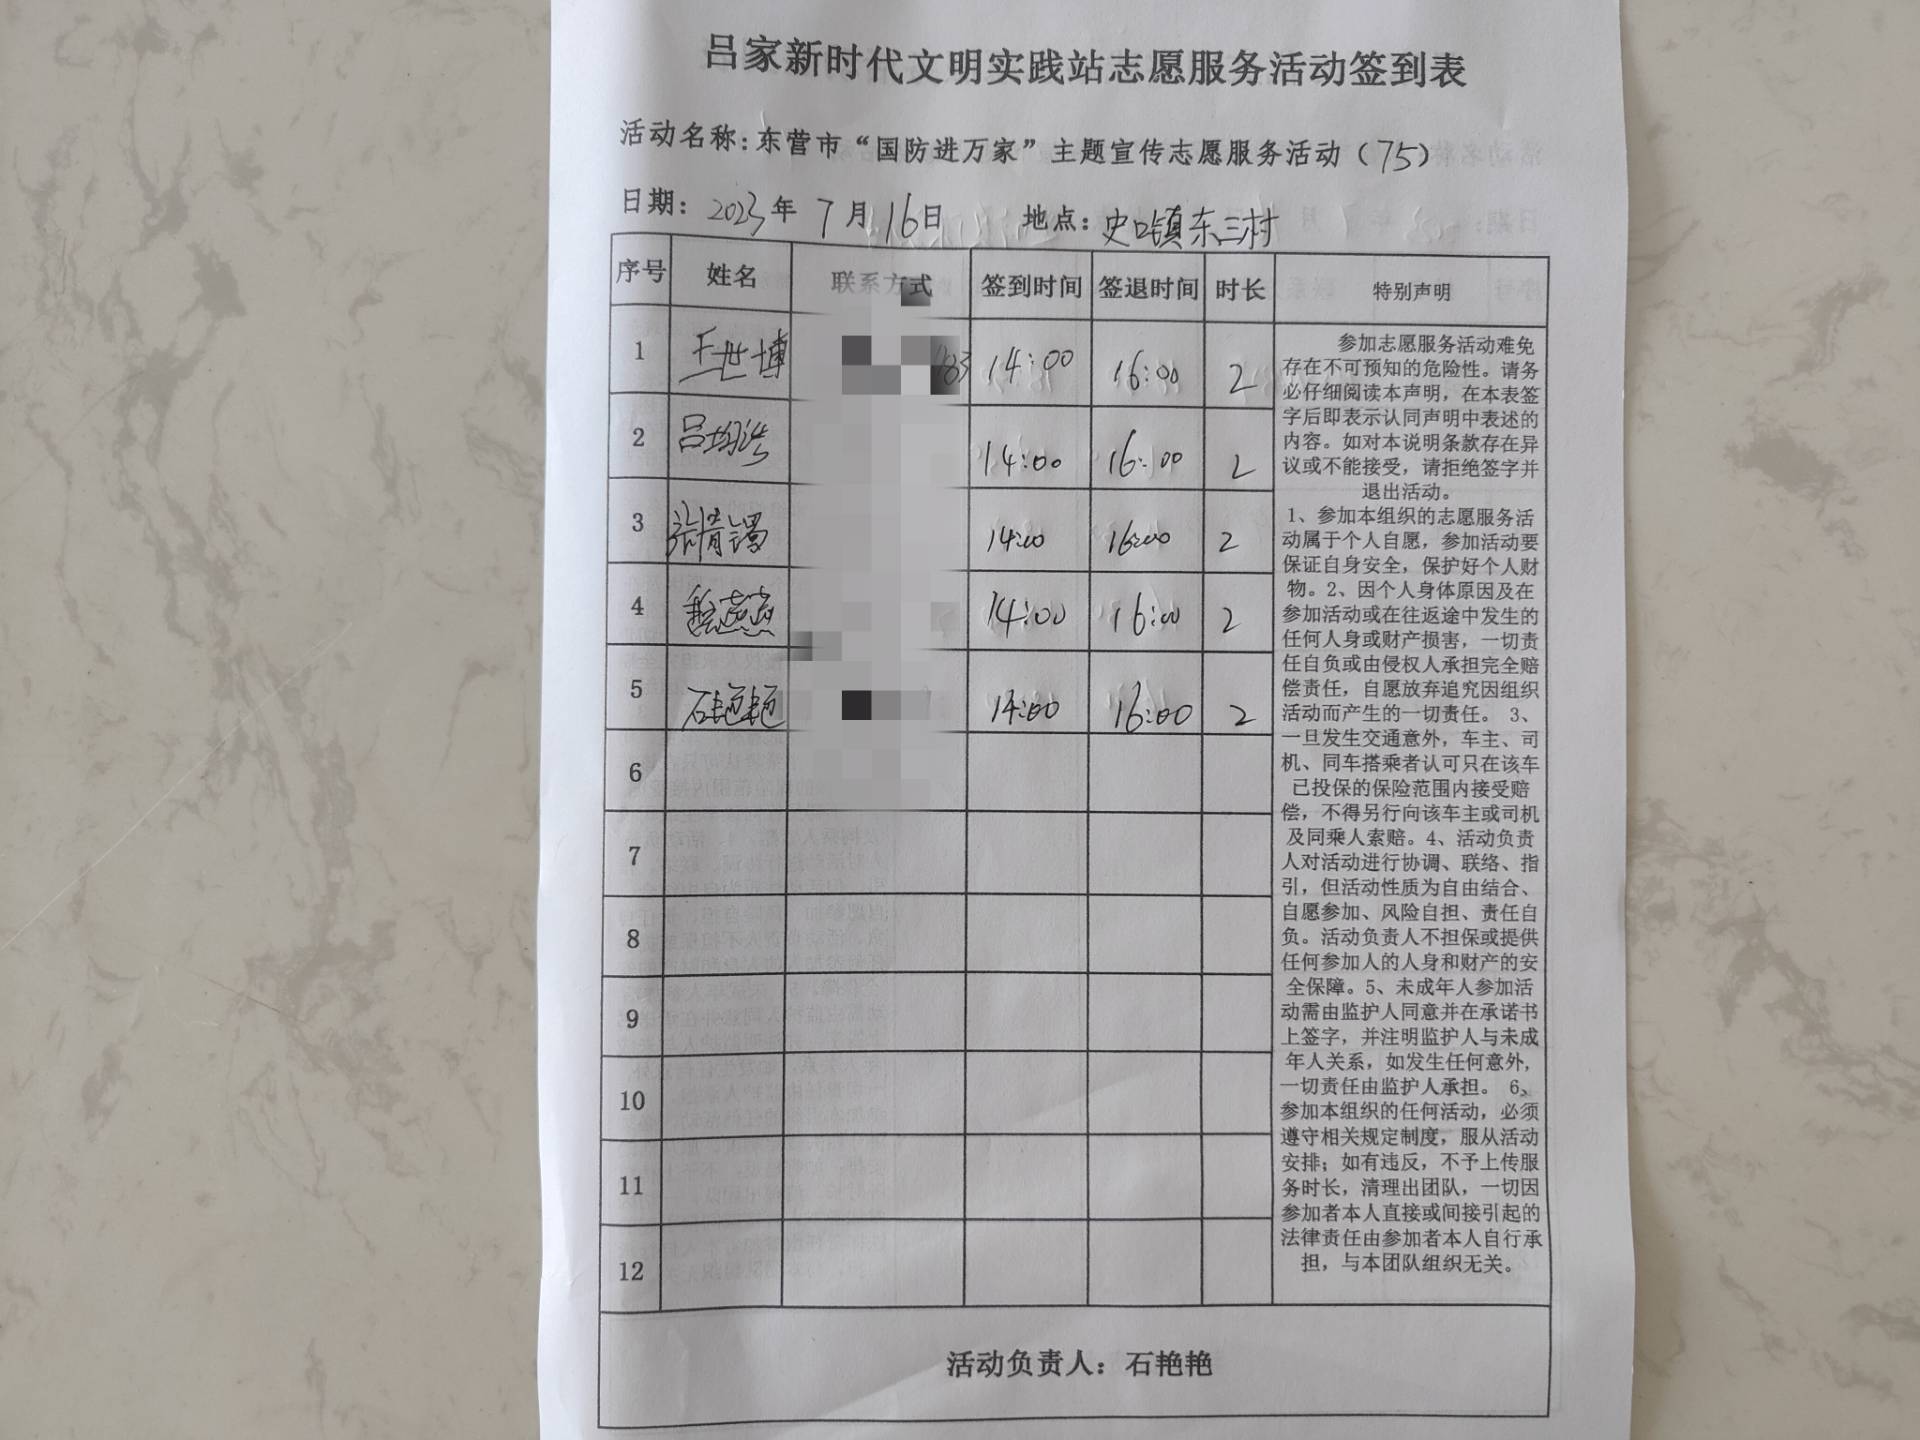 吕家新时代文明实践站志愿服务活动签到表
活动名称:东营市“国防进万家”主题宣传志愿服务活动（75）
日期: 2023年 7月16日 地点: 史口镇东三村
序号 姓名 联系方式 签到时间 签退时间 时长 特别声明
1 王世博 14:00 16:00 2
2 吕 14:00 16:00 2
3 张 14:00 16:00 2
4 14:00 16:00 2
5 石艳艳 14:00 16:00 2
6
7
8
9
10
11
12
参加志愿服务活动难免
存在不可预知的危险性。请务
必仔细阅读本声明，在本表签
字后即表示认同声明中表述的
内容。如对本说明条款存在异
议或不能接受，请拒绝签字并
退出活动。
1、参加本组织的志愿服务活
动属于个人自愿，参加活动要
保证自身安全，保护好个人财
物。2、因个人身体原因及在
参加活动或在往返途中发生的
任何人身或财产损害，一切责
任自负或由侵权人承担完全赔
偿责任，自愿放弃追究因组织
活动而产生的一切责任。 3、
一旦发生交通意外，车主、司
机、同车搭乘者认可只在该车
已投保的保险范围内接受赔
偿，不得另行向该车主或司机
及同乘人索赔。4、活动负责
人对活动进行协调、联络、指
引，但活动性质为自由结合、
自愿参加、风险自担、责任自
负。活动负责人不担保或提供
任何参加人的人身和财产的安
全保障。5、未成年人参加活
动需由监护人同意并在承诺书
上签字，并注明监护人与未成
年人关系，如发生任何意外，
一切责任由监护人承担。 6、
参加本组织的任何活动，必须
遵守相关规定制度，服从活动
安排；如有违反，不予上传服
务时长，清理出团队，一切因
参加者本人直接或间接引起的
法律责任由参加者本人自行承
担，与本团队组织无关。
活动负责人：石艳艳